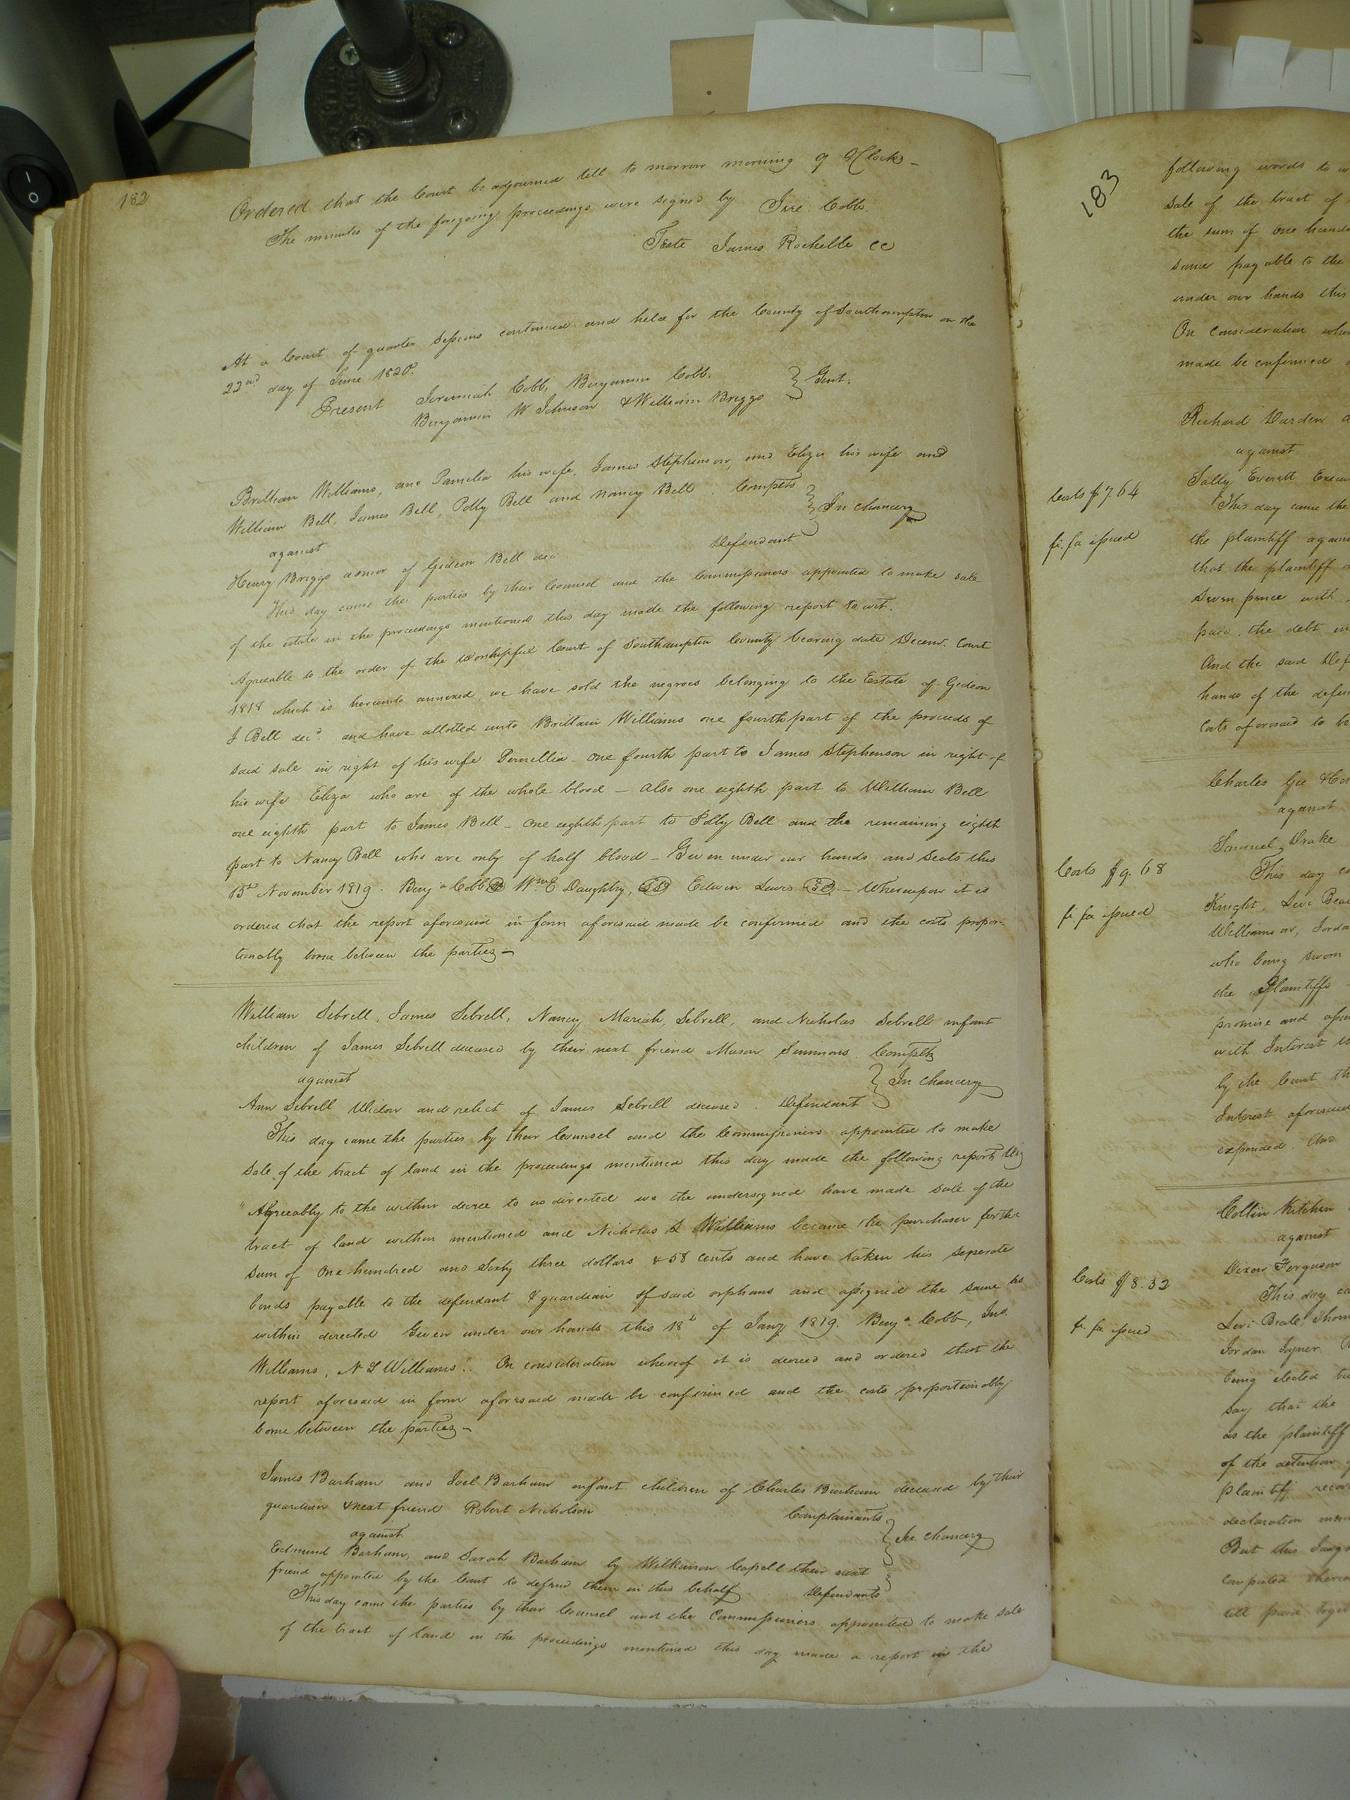 182
Ordered that the Court be adjourned till to morrow morning 9 OClock –
The minutes of the foregoing proceedings were signed by Jere Cobb
Teste James Rochelle CC
At a Court of quarter Sessions continued and held for the County of Southampton on the
22nd day of June 1820.
Present Jeremiah Cobb, Benjamin Cobb, } Gent.
Benjamin W Johnson & William Briggs
Brittian Williams, and Pamelia his wife, James Stephenson, and Eliza his wife and
William Bell, James Bell, Polly Bell and Nancy Bell Complts } In chancery
against
Henry Briggs admor of Gideon Bell dec Defendant
This day came the parties by their Counsel and the Commissioners appointed to make sale
of the estate in the proceedings mentioned this day made the following report to wit.
Agreeable to the order of the worshipful Court of Southampton County bearing date Decem. Court
1818 which is hereunto annexed, we have sold the negroes belonging to the Estate of Gideon
J Bell decd. and have allotted unto Brittain Williams one fourth part of the proceeds of
said sale in right of his wife Permellia – one fourth part to James Stephenson in right of
his wife Eliza who are of the whole blood – also one eighth part to William Bell
one eighth part to James Bell – one eighth part to Polly Bell and the remaining eighth
part to Nancy Bell who are only of half blood – Given under our hands and Seals this
13th November 1819. Benja Cobb Wm E Daughtry, Edwin Lewis – Whereupon it is
ordered that the report aforesaid in form aforesaid made be confirmed and the costs propor-
tionally borne between the parties –
William Sebrell, James Sebrell, Nancy Mariah Sebrell, and Nicholas Sebrell infant
children of James Sebrell deceased by their next friend Mason Simmons Complts
against } In chancery
Ann Sebrell Widow and relict of James Sebrell deceased. Defendant
This day came the parties by their Counsel and the Commissioners appointed to make
Sale of the tract of land in the proceedings mentioned this day made the following report
"Agreeably to the within decree to us directed we the undersigned have made sale of the
tract of land within mentioned and Nicholas L Williams became the purchaser for the
Sum of One hundred and Sixty three dollars & 58 cents and have taken his seperate
bonds payable to the defendant & guardian of said orphans and assigned the same as
within directed Given under our hands this 18th of Jany 1819. Benja Cobb, Jno.
Williams, N L Williams". On consideration whereof it is decreed and ordered that the
report aforesaid in form aforesaid made be confirmed and the costs proportionably
borne between the parties –
James Barham and Joel Barham infant children of Charles Barham deceased by their
guardian & next friend Robert Nicholson Complainants
against } In chancery
Edmund Barham, and Sarah Barham by Wilkinson Capell their next
friend appointed by the Court to defend them in this behalf Defendants
This day came the parties by their Counsel and the Commissioners appointed to make sale
of the tract of land in the proceedings mentioned this day made a report in the
183
following words to
Sale of the tract of
the sum of one
same payable to the
under our hands this
On consideration
made be confirmed
Richard Darden
against
Costs $7.64
Sally Everett
This day came the
fi. fa issued
the plaintiff
that the plaintiff
Seven pence with
the debt
And the said
hands of the
Costs aforesaid to
Charles Gee
against
Samuel Drake
Costs $9.68
This day
fi. fa issued
Knight, Levi
Williamson,
who being sworn
the Plaintiffs
promise and
with Interest
by the Court
Interest
expended And
Collin Kitchen
against
Dixon Ferguson
Costs $8.32
This day
fi. fa issued
Levi Beale
Jordan Joyner
being elected
Say that the
as the plaintiff
of the detention
plaintiff
declaration
But this
computed
till paid